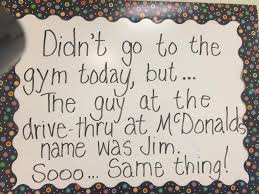 Didn't go to the
gym today, but...
The guy at the
drive-thru at McDonalds
name was Jim.
Sooo... Same thing!